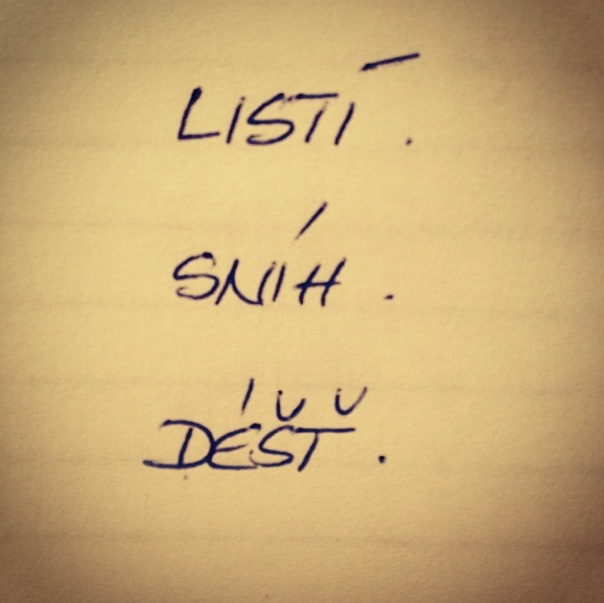 LISTÍ.
SNÍH.
DÉŠŤ.